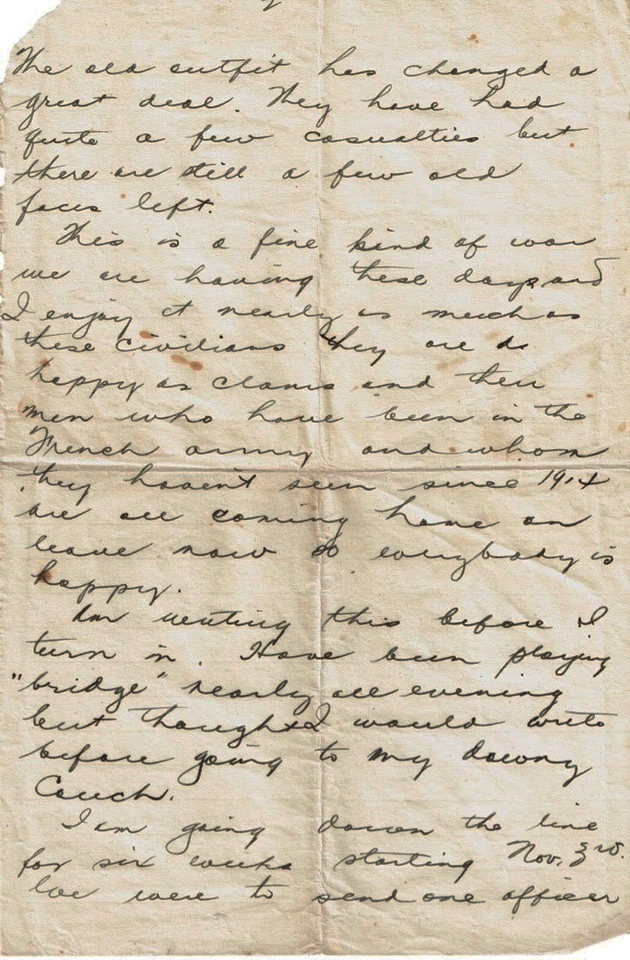 The old outfit has changed a
great deal. They have had
quite a few casualties but
there are still a few old
faces left.
This is a fine kind of war
we are having these days and
I enjoy it nearly as much as
these civilians they are as
happy as clams and their
men who have been in the
French army and whom
they haven't seen since 1914
are all coming home on
leave now so everybody is
happy.
Am writing this before I
turn in. Have been playing
"bridge" nearly all evening
but thought I would write
before going to my downy
couch.
I am going down the line
for six weeks starting Nov. 3rd.
We were to send one officer